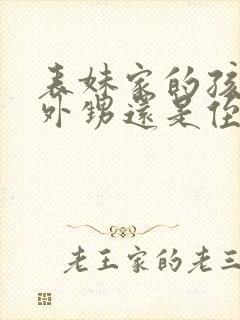 表妹家的孩
外甥還是侄
老王家的老三